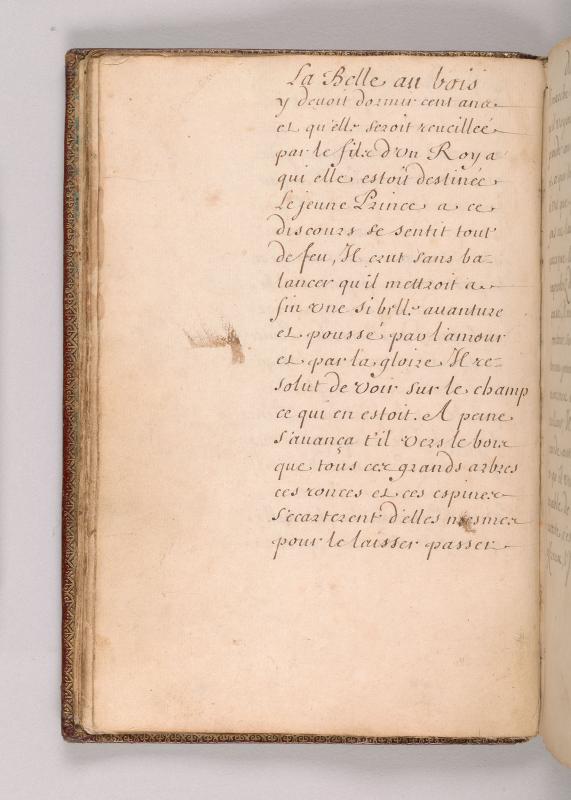 La Belle au bois
y deuoit dormir cent ans
et qu'elle seroit reueilleé
par le fils d'vn Roy a
qui elle estoit destineé
Le jeune Prince a ce
discours se sentit tout
de feu, Il crut sans ba-
lancer qu'il mettroit a
fin vne si belle auanture
et poussé par l'amour
et par la gloire Il re-
solut de voir sur le champ
ce qui en estoit. A peine
s'auança t'il vers le bois
que tous ces grands arbres
ces ronces et ces espines
s'ecarterent d'elles mesmes
pour le laisser passer